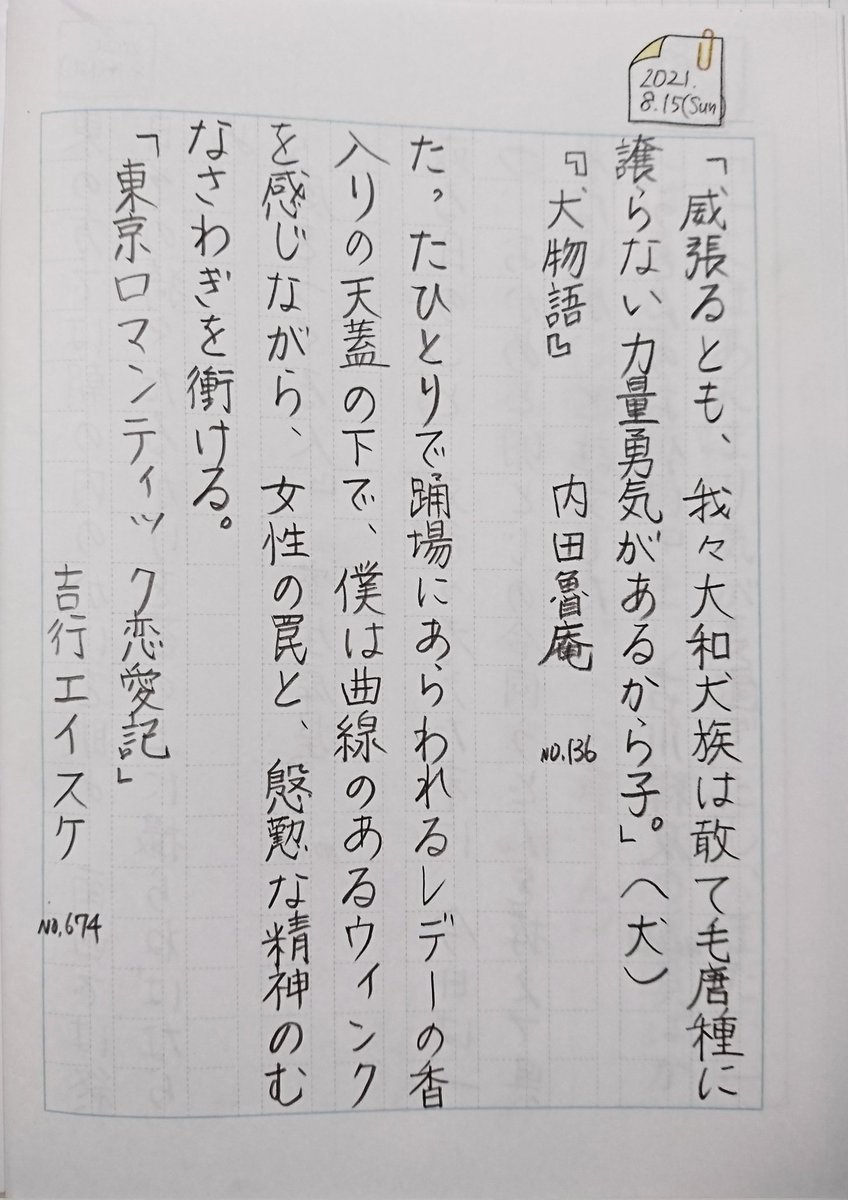 2021.
8.15(Sun)
「威張るとも、我々大和犬族は敢て毛唐種に
譲らない力量勇気があるから子。」(犬)
『犬物語』 内田魯庵 NO.136
たったひとりで踊場にあらわれるレデーの香
入りの天蓋の下で、僕は曲線のあるウィンク
を感じながら、女性の罠と、慇懃な精神のむ
なさわぎを衝ける。
「東京ロマンティック恋愛記」
吉行エイスケ NO.674